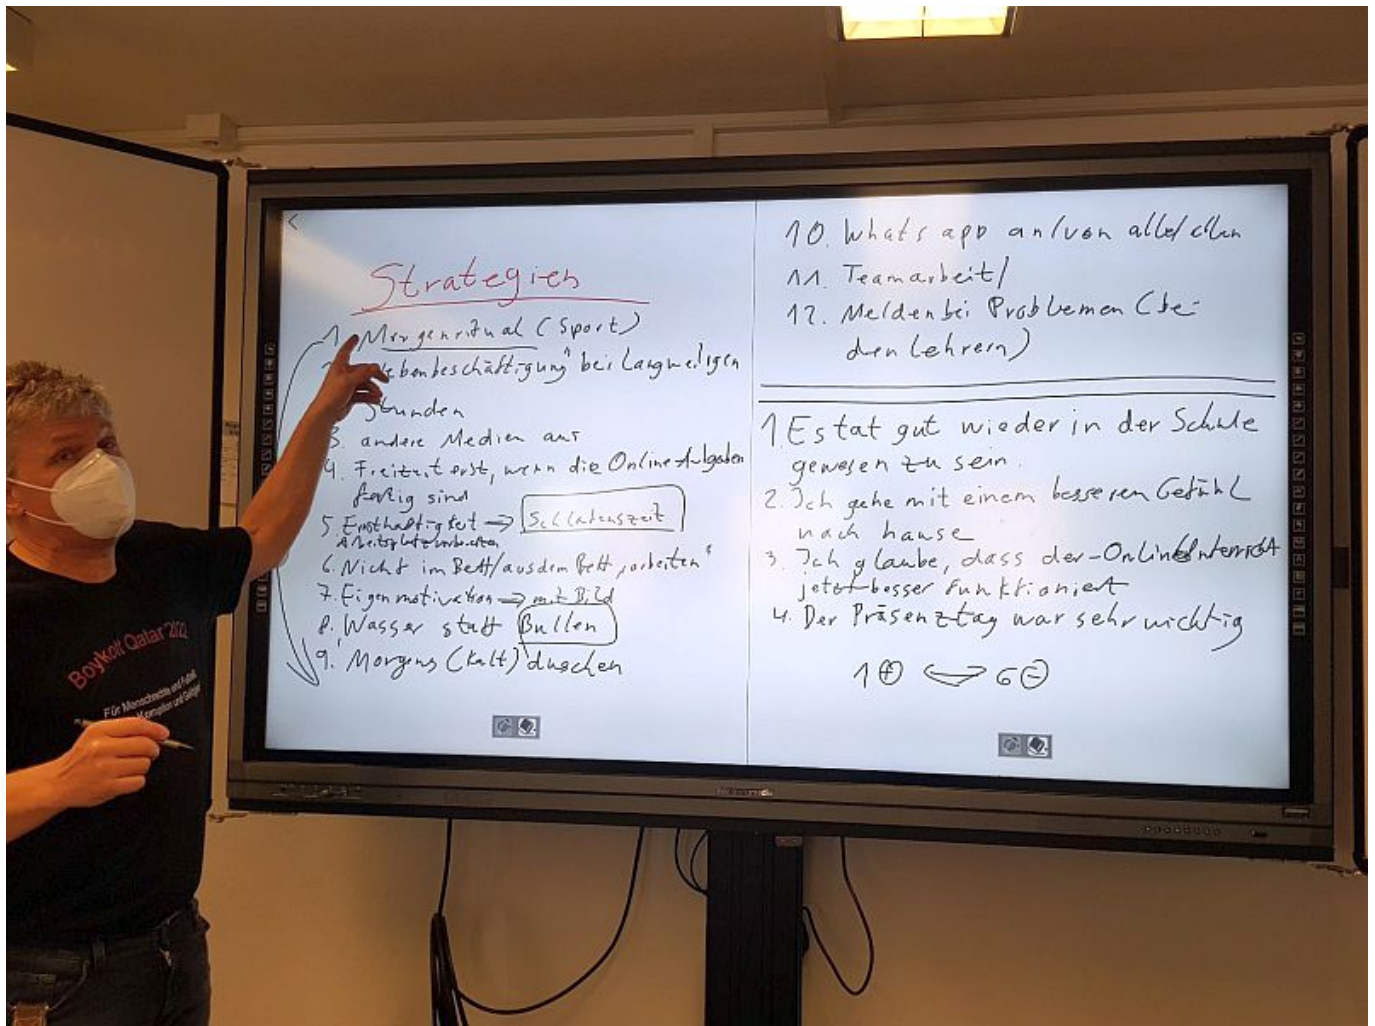 Strategien
1. Morgenritual (Sport)
Nebenbeschäftigung" bei langweiligen
Stunden
3. andere Medien aus
4. Freizeit erst, wenn die Online-Aufgaben
fertig sind
5 Ernsthaftigkeit → Schlafenszeit
Arbeitsplatz vorbereiten
6. Nicht im Bett/aus dem Bett „arbeiten"
7. Eigenmotivation → mit Bild
8. Wasser statt Bullen
9. Morgens (kalt) duschen
10. Whats app an/von alle/allen
11. Teamarbeit/
12. Melden bei Problemen (bei
den Lehrern)
1. Es tat gut wieder in der Schule
gewesen zu sein.
2. Ich gehe mit einem besseren Gefühl
nach hause
3. Ich glaube, dass der Onlineunterricht
jetzt besser funktioniert
4. Der Präsenztag war sehr wichtig
1 + 6 -
Boykott Qatar 2022
Für Menschenrechte und Fußball
Korruption und